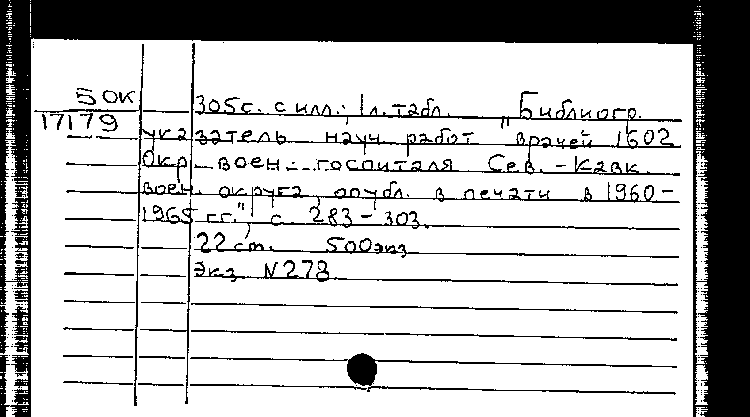 50К
17179
305с. с илл.; 1 л. табл. „Библиогр.
указатель науч работ врачей 1602
Окр. воен. госпиталя Сев. - Кавк.
воен. округа, опубл. в печати в 1960-
1965 гг.", с. 283-303.
22 см. 500экз
Экз. N 273